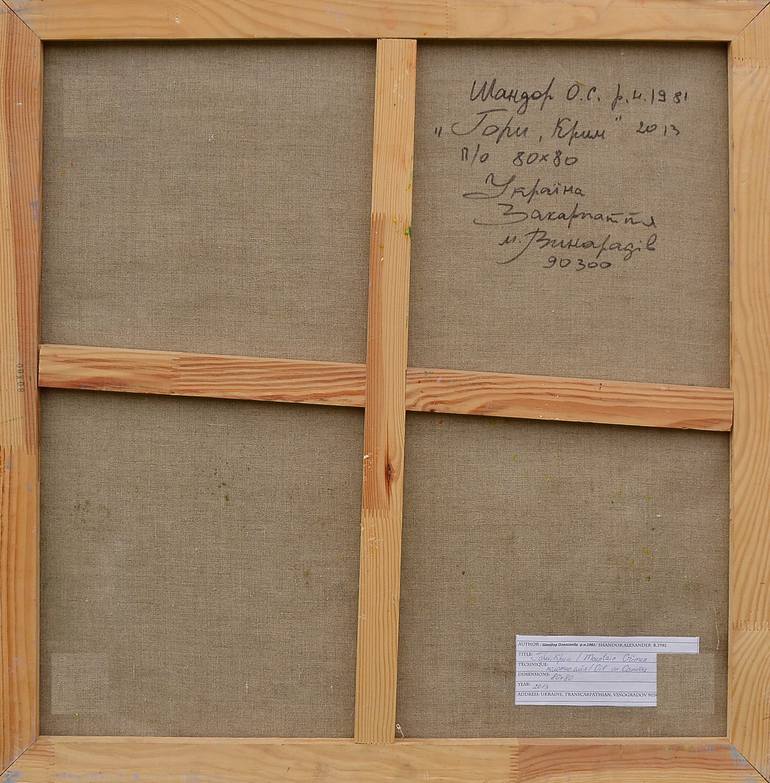 Шандор О.С. р.н.1981
„Гори, Крим" 2013
п/о 80х80
Україна
Закарпаття
м. Винарадів
90300
00108
AUTHOR: Шандор Олександр р.н.1981/ SHANDOR ALEXANDER B.1981
TITLE: Гори. Крим / Mountain Crimea
TECHNIQUE: полотно олія / Oil on Canvas
DIMENSIONS: 80x80
YEAR: 2013
ADDRESS: UKRAINE, TRANSCARPATHIAN, VINOGRADOV